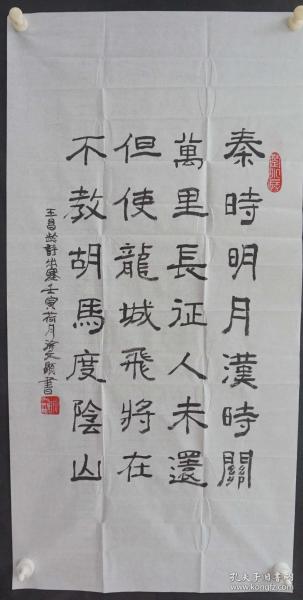 秦時明月漢時關
萬里長征人未還
但使龍城飛將在
不教胡馬度陰山
王昌齡詩出塞壬寅荷月
書
孔夫子旧书网
www.kongfz.com